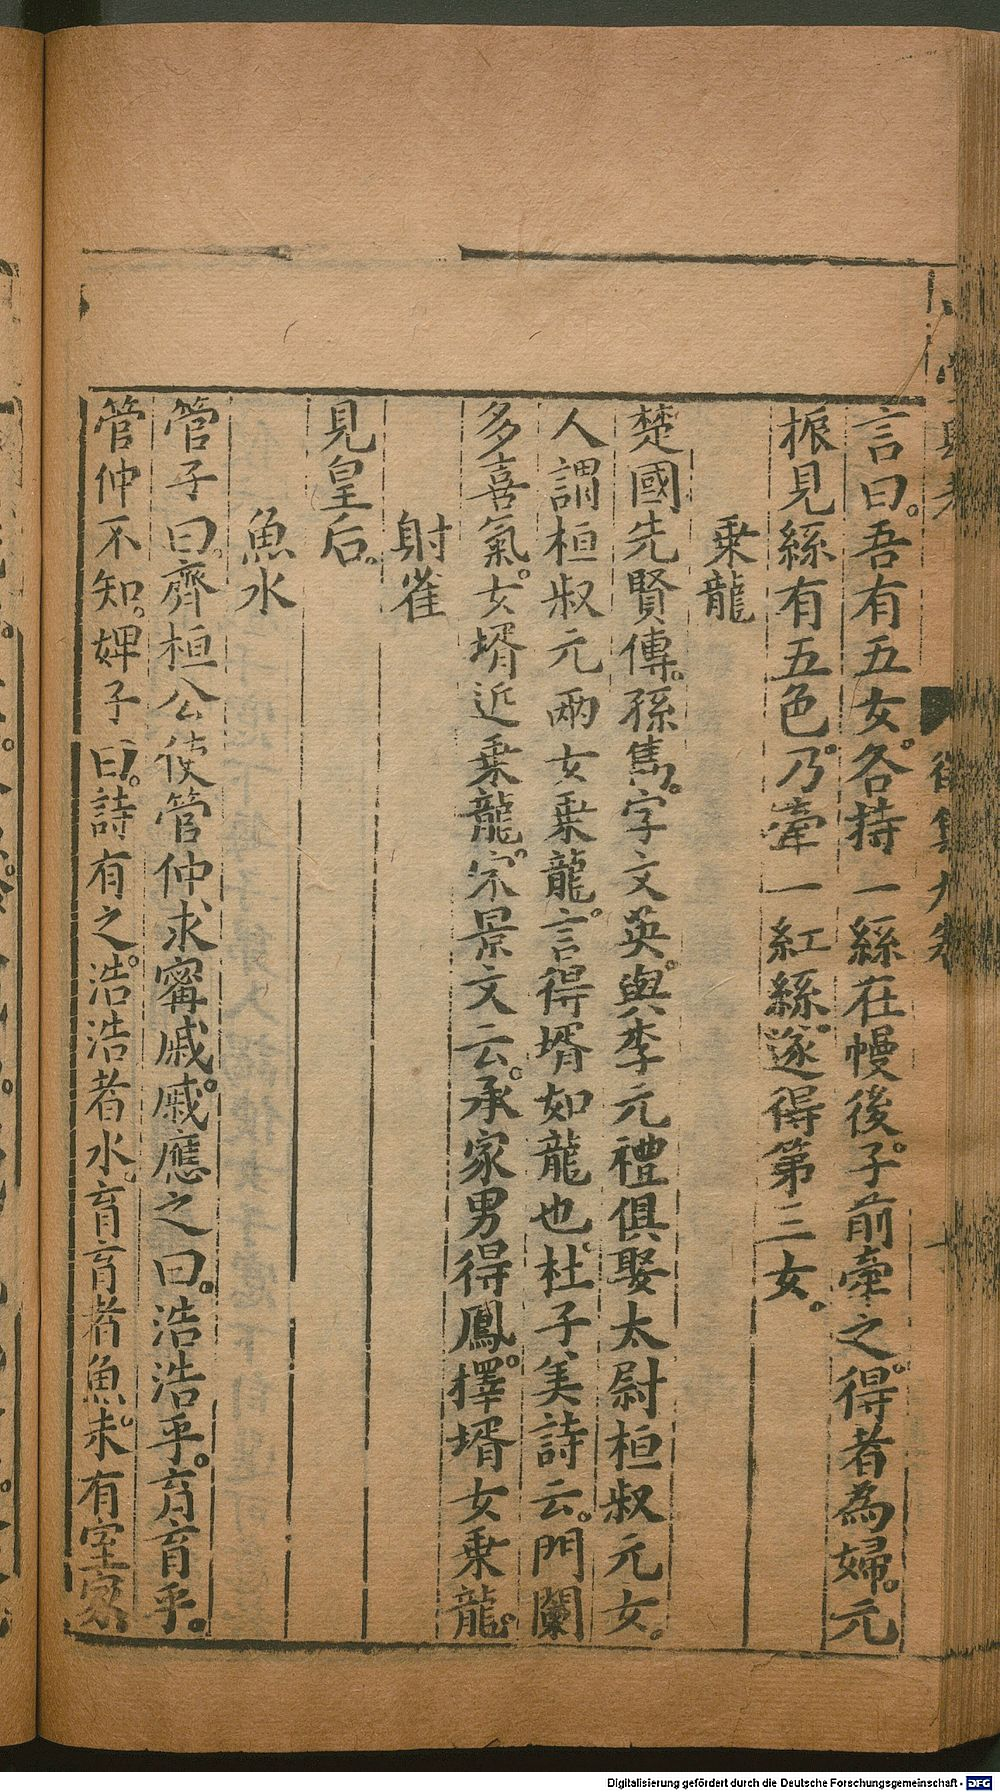 言曰。吾有五女。各持一絲在幔後。子前牽之。得者為婦。元
振見絲有五色。乃牽一紅絲。遂得第三女。
乗龍
楚國先賢傳。孫雋。字文英。與李元禮俱娶太尉桓叔元女。
人謂桓叔元兩女乗龍。言得壻如龍也。杜子美詩云。門闌
多喜氣。女壻近乗龍。宋景文云。承家男得鳳。擇壻女乗龍。
射雀
見皇后。
魚水
管子曰。齊桓公使管仲求甯戚。戚應之曰。浩浩乎。育育乎。
管仲不知。婢子曰。詩有之。浩浩者水。育育者魚。未有室家
Digitalisierung gefördert durch die Deutsche Forschungsgemeinschaft - DFG